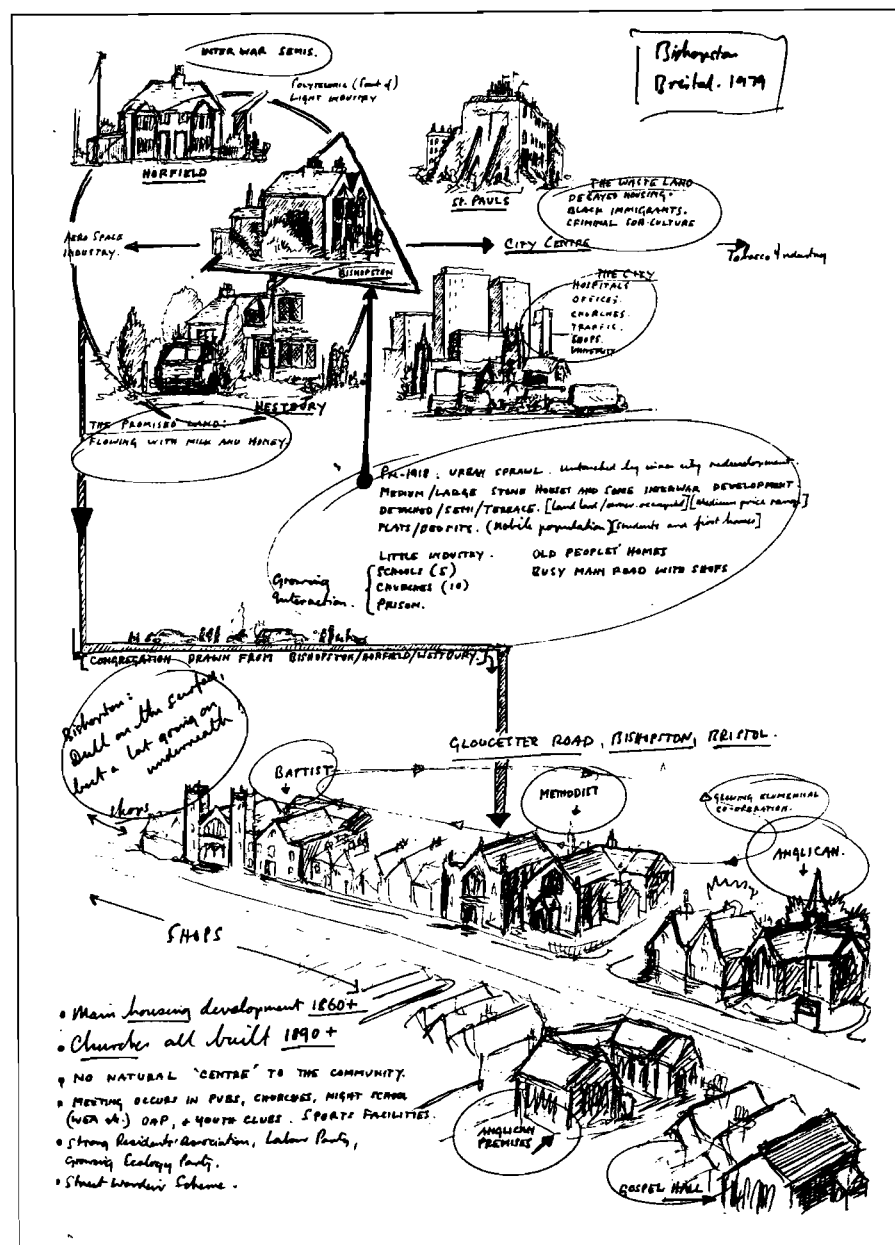 Bishopston
Bristol. 1979
INTER WAR SEMIS.
POLYTECHNIC (Part of)
LIGHT INDUSTRY
HORFIELD
ST. PAULS
THE WASTE LAND
DECAYED HOUSING.
BLACK IMMIGRANTS.
CRIMINAL SUB-CULTURE
AERO SPACE
INDUSTRY.
BISHOPSTON
CITY CENTRE
Tobacco Industry
THE CITY
HOSPITALS
OFFICES.
CHURCHES.
TRAFFIC.
SHOPS.
UNIVERSITY
WESTBURY
THE PROMISED LAND:
FLOWING WITH MILK AND HONEY.
PRE-1918: URBAN SPRAWL. Untouched by inner city redevelopment.
MEDIUM/LARGE STONE HOUSES AND SOME INTERWAR DEVELOPMENT.
DETACHED/SEMI/TERRACE. [Land lord/owner occupied][Medium price range]
FLATS/BEDSITS. (Mobile population)[Students and first homes]
LITTLE INDUSTRY. OLD PEOPLES' HOMES
SCHOOLS (5) BUSY MAIN ROAD WITH SHOPS
Growing
Interaction.
CHURCHES (10)
PRISON.
CONGREGATION DRAWN FROM BISHOPSTON/HORFIELD/WESTBURY.
Bishopston:
Dull on the surface,
but a lot going on
underneath!
GLOUCESTER ROAD, BISHOPSTON, BRISTOL.
BAPTIST
METHODIST
GROWING ECUMENICAL
CO-OPERATION.
ANGLICAN.
Shops
SHOPS
• Main housing development 1860+
• Churches all built 1890+
• NO NATURAL 'CENTRE' TO THE COMMUNITY.
• MEETING OCCURS IN PUBS, CHURCHES, NIGHT SCHOOL
(WEA etc.) OAP, + YOUTH CLUBS. SPORTS FACILITIES.
• Strong Residents' Association, Labour Party,
Growing Ecology Party.
• Street Warden Scheme.
ANGLICAN
PREMISES
GOSPEL HALL